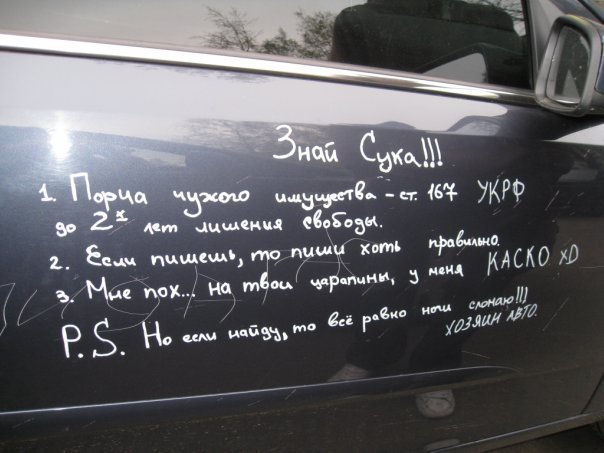 Знай Сука!!!
1. Порча чужого имущества - ст. 167 УКРФ
до 2х лет лишения свободы.
2. Если пишешь, то пиши хоть правильно.
3. Мне пох... на твои царапины, у меня КАСКО xD
P.S. Но если найду, то всё равно ноги сломаю!!!
ХОЗЯИН АВТО.